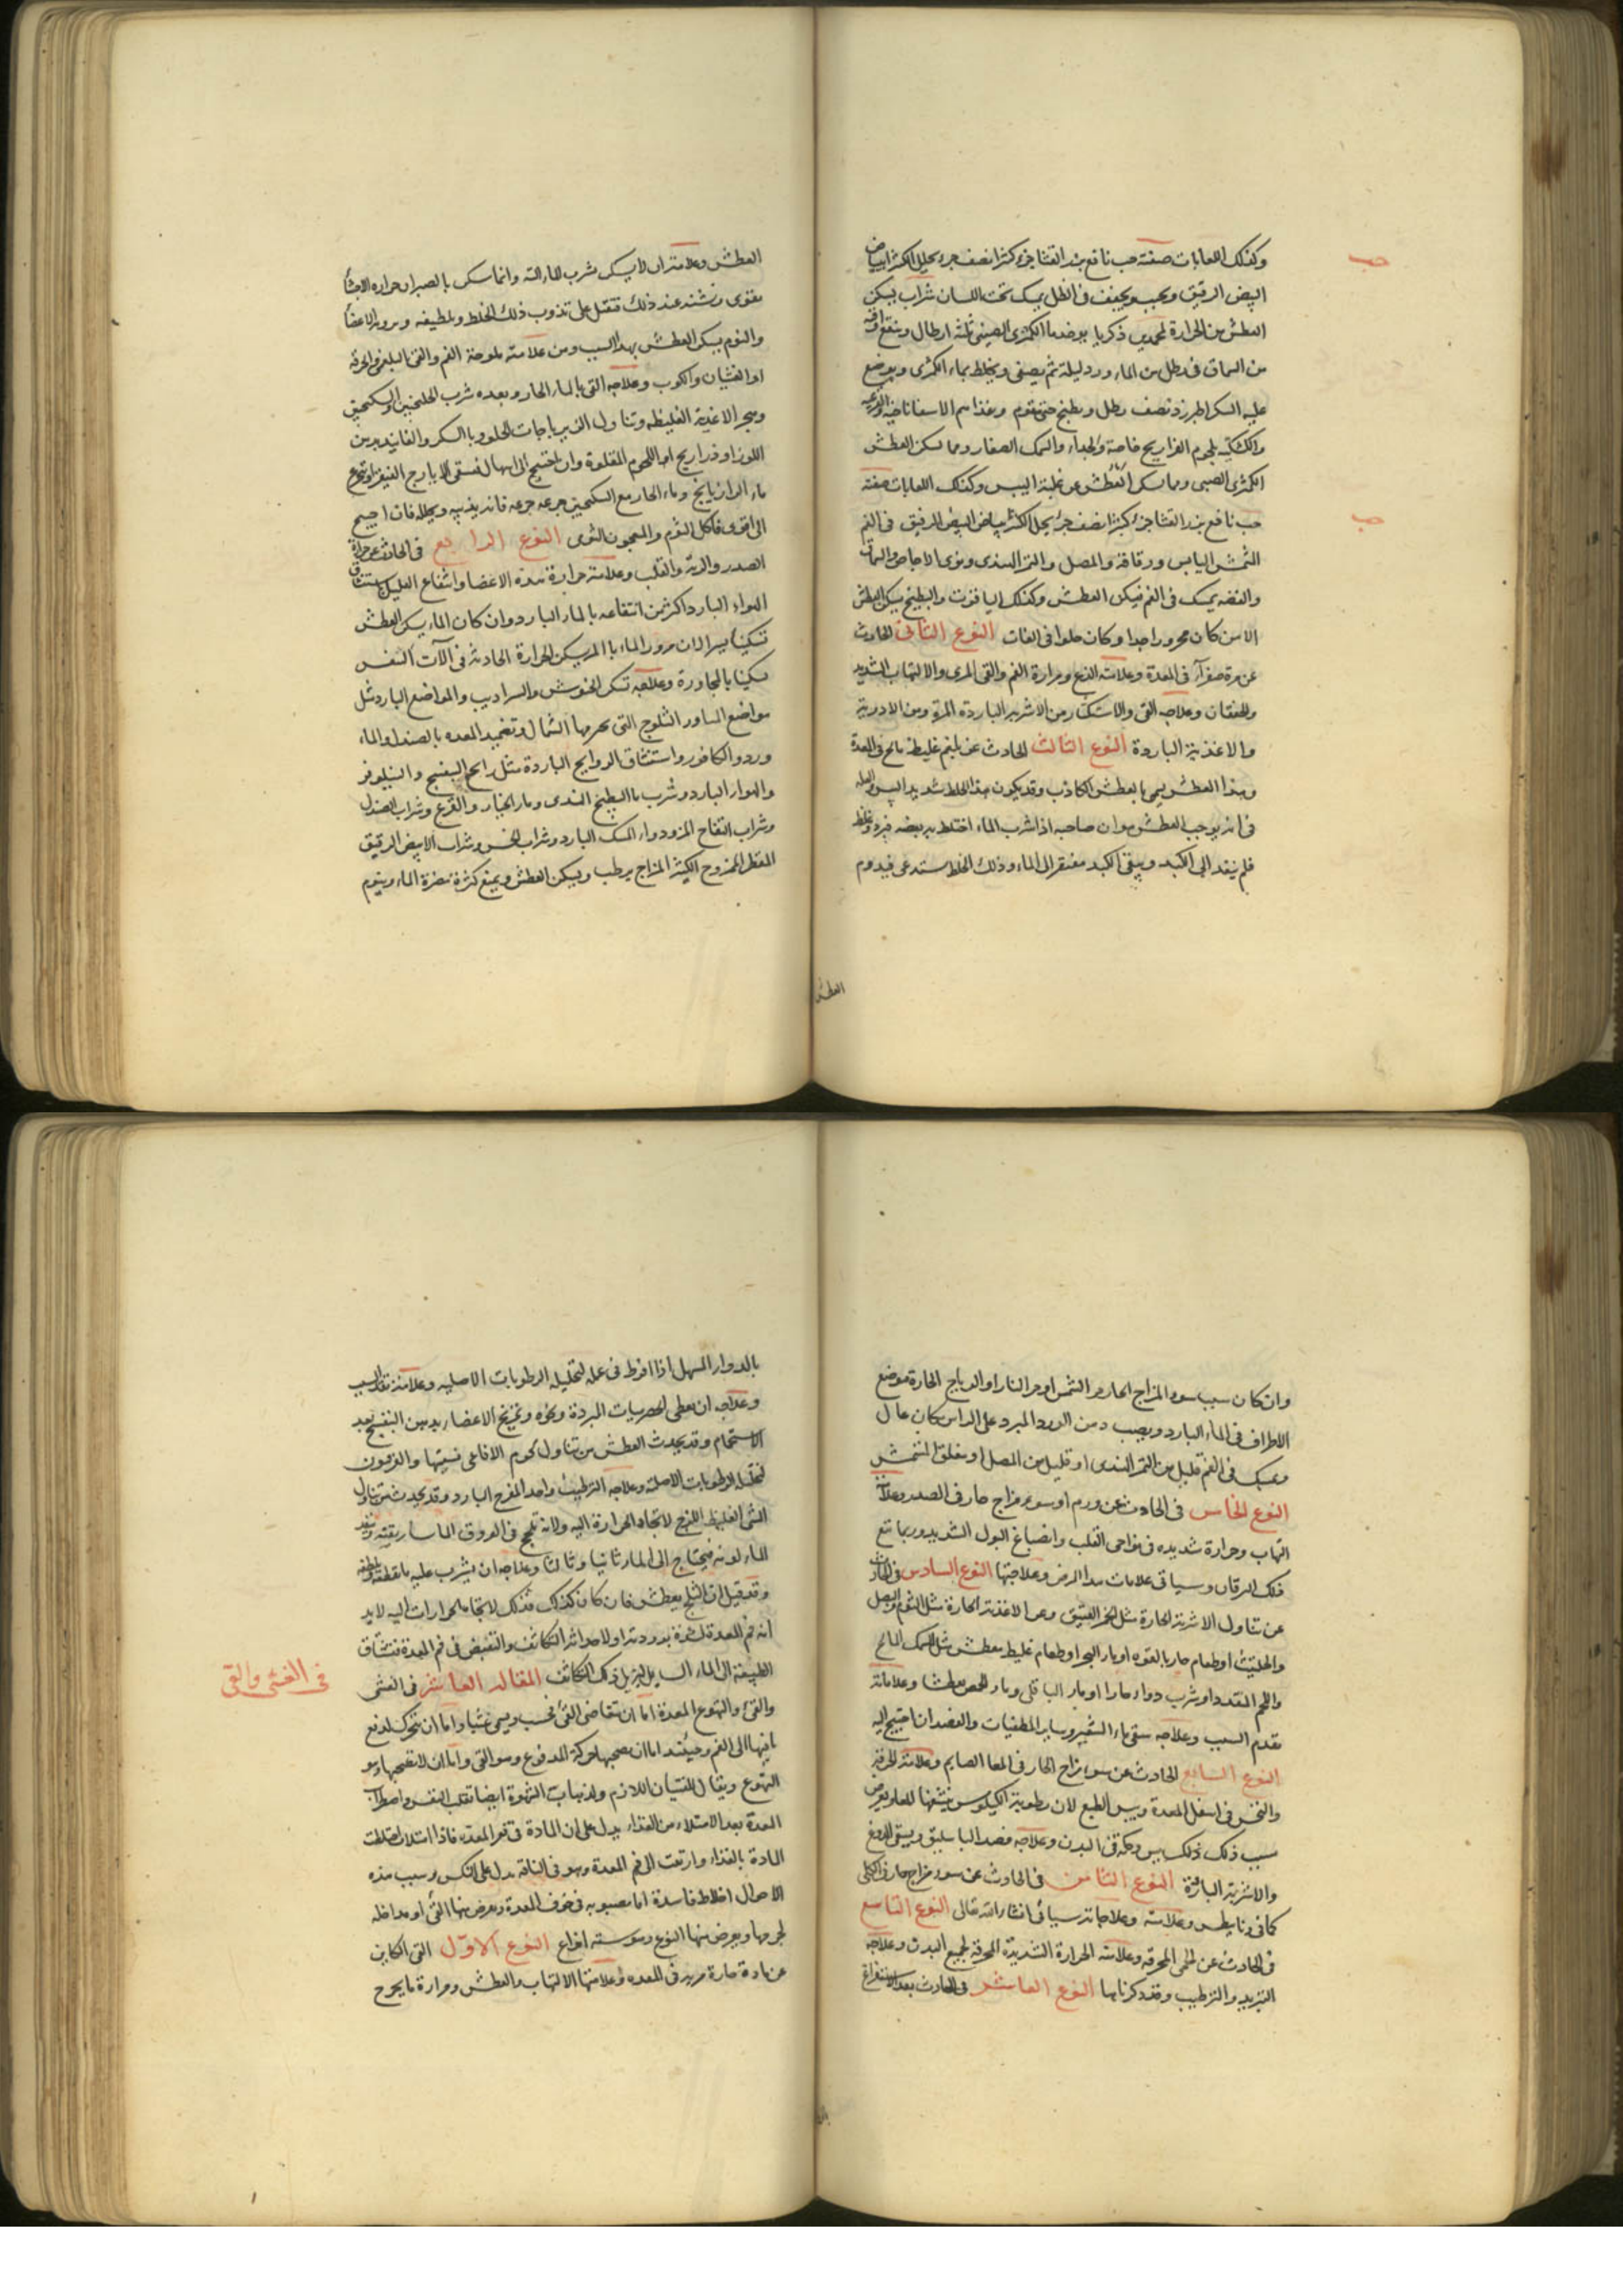 حب
وكذلك اللعابات صفة حب نافع بزر القثا جزء كثيرا نصف جزء يحل الكثيرا ببياض
البيض الرقيق ويحبب ويجفف فى الظل يمسك تحت اللسان شراب يسكن
العطش من الحرارة لمحمد بن زكريا يوخذ ماء الكمثرى الصينى ثلثة ارطال وينقع
من السماق فى رطل من الماء ورد ليلة ثم يصفى ويخلط بماء الكمثرى ويوضع
عليه السكر الطبرزد نصف رطل ويطبخ حتى يقوم وغذاهم الاسفاناخية والقرعية
والكشكية بلحوم الفراريج خاصة والجداء والسمك الصغار ومما يسكن العطش
الكمثرى الصينى ومما يسكن العطش عن غلبة اليبس وكذلك اللعابات صفة
حب
حب نافع بزر القثا جزء كثيرا نصف جزء يحل الكثيرا ببياض البيض الرقيق فى الفم
المشمش اليابس ورقاقة والمصل والتمر الهندى ونوى الاجاص والسماق
والفضه يمسك فى الفم فيسكن العطش وكذلك الياقوت والبطيخ يسكن العطش
الا من كان محرورا جدا وكان حلوا فى الغاية النوع الثانى الحادث
عن مرة صفرآء فى المعدة وعلامته اللذع ومرارة الفم والقى المرى والالتهاب الشديد
والخفقان وعلاجه القى والاستكثار من الاشربه الباردة المزة ومن الادوية
والاغذية الباردة النوع الثالث الحادث عن بلغم غليظ مالح فى المعدة
وهذا العطش يسمى بالعطش الكاذب وقد يكون هذا الخلط شديد اليبس والعله
فى انه يوجب العطش هو ان صاحبه اذا شرب الماء اختلط به بعضه فبرد وغلظ
فلم ينفذ الى الكبد ويبقى الكبد مفتقرا الى الماء وذلك الخلط يستدعى فيدوم
العطش
العطش وعلامته ان لا يسكن بشرب الماء البتة وانما سكن بالصبر لان حرارة الاحشأ
يقوى ويشتد عند ذلك فتقبل على تذويب ذلك الخلط وتلطيفه وبرويه الاعضأ
والنوم يسكن العطش بهذا السبب ومن علامته ملوحة الفم والقى البلغمى الحرقة
او الغثيان والكرب وعلاجه القى بالماء الحار وبعده شرب الجلنجبين والسكنجبين
وهجر الاغذية الغليظه وتناول الزيرباجات الحلوه بالسكر والفانيذ بدهن
اللوز او فراريج او اللحوم المقلوة وان احتيج الى اسهال فسقى الايارج الفيقرا وتجرع
ماء الرازيانج وماء الحار مع السكنجبين جرعه جرعه فانه يذيبه ويحلله فان احتيج
الى اقوى فاكل الثوم والمعجون الثومى النوع الرابع فى الحادث عن حرارة
الصدر والرئة والقلب وعلامته حرارة هذه الاعضا وانتفاع العليل باستنشاق
الهواء البارد اكثر من انتفاعه بالماء البارد وان كان الماء يسكن العطش
تسكينا يسيرا لان مرور الماء بالمرى يسكن الحرارة الحادثه فى آلآت النفس
تسكينا بالمجاورة وعلاجه تسكن الخيوش والسراديب والمواضع الباردة مثل
مواضع الثلوج التى يمر بها الشمال وتضميد المعده بالصندل والماء
ورد والكافور واستنشاق الروايح الباردة مثل رايح البنفسج والنيلوفر
والهواء البارد وشرب ماء البطيخ الهندى وماء الخيار والقرع وشراب الصندل
وشراب التفاح المز ودواء المسك البارد وشراب الخس وشراب الابيض الرقيق
المقطر الممزوج الكثير المزاج يرطب ويسكن العطش ويمنع كثرة مضرة الماء وينوم
وان كان سبب سوء المزاج الحار حر الشمس او حر النار او الرياح الحارة فوضع
الاطراف فى الماء البارد ويصب دهن الورد المبرد على الراس مكان عال
ويمسك فى الفم قليل من التمر الهندى او قليل من المصل او مغلق المشمش
النوع الخامس فى الحادث عن ورم او سوء مزاج حار فى الصدر وعلامته
التهاب وحرارة شديده فى نواحى القلب وانصباغ البول الشديد وربما تبع
ذلك اليرقان وسياتى علامات هذا المرض وعلاجتها النوع السادس فى الحادث
عن تناول الاشربة الحارة مثل الخمر العتيق وعن الاغذية الحارة مثل الثوم والبصل
والحلتيت او طعام حار بالقوه او ماء البحر او طعام غليظ معطش مثل السمك المالح
واللحم المقدد او شرب دواء حار او ماء الباقلى وماء الحمص يعطشا وعلاماته
تقدم السبب وعلاجه سقى ماء الشعير وساير المطفيات والفصد ان احتيج اليه
النوع السابع الحادث عن سوء مزاج الحار فى المعا الصايم وعلامته الحرقة
والنخس فى اسفل المعدة ويبس الطبع لان رطوبة الكيلوس ينشفها المعا ويعرض
بسبب ذلك ذلك يبس وحكه فى البدن وعلاجه فصد الباسليق ويسقى الدوغ
والاشربة الباردة النوع الثامن فى الحادث عن سوء مزاج حار فى الكلى
كما فى ديابيطس وعلامته وعلاجاته سياتى انشاء الله تعالى النوع التاسع
فى الحادث عن الحمى المحرقه وعلامته الحرارة الشديدة المحرقة لجميع البدن وعلاجه
التبريد والترطيب وقد ذكرناها النوع العاشر فى الحادث بعد الاستفراغ
بالدواء المسهل اذا افرط فى عمله لتحليله الرطوبات الاصليه وعلامته تقدم السبب
وعلاجه ان يعطى الحصرميات المبردة ونحوه وتمريخ الاعضاء بدهن البنفسج بعد
الاستحمام وقد يحدث العطش من تناول لحوم الافاعى نسيتها والفربيون
لتحليلها الرطوبات الاصلية وعلاجه الترطيب واحد المفرح البارد وقد يحدث من تناول
الشى الغليظ اللزج لاتجاه الحرارة اليه ولانه تلحج فى العروق الماساريقيه وينفد
الماء لونه فيحتاج الى الماء ثانيا وثالثا وعلاجه ان يشرب عليه ما يقطعه ويلطفه
وقد قيل ان الثلج يعطش فان كان كذلك فذلك لاتجاه الحرارات اليه لا يد
انه فم المعدة لشدة برودته او لاحداثه التكاثف والتقبض فى فم المعدة فتشتاق
الطبيعة الى الماء السايل ليزيل ذلك التكاثف المقاله العاشر فى الغثى
فى الغثى والقى
والقئ والتهوع المعدة اما ان يتقاضى القئ فحسب ويسمى غثيا واما ان يتحرك لدفع
ما فيها الى الفم وحينئذ اما ان يصحبها حركة المدفوع وهو القى واما ان لا يصحبها وهو
التهوع ويقال للغثيان اللازم ولذهاب الشهوة ايضا تقلب النفس واضطراب
المعدة بعد الامتلاء من الغذاء يدل على ان المادة فى قعر المعدة فاذا امتلات اختلطت
المادة بالغذاء وارتقت الى فم المعدة وهو فى الناقه يدل على النكس وسبب هذه
الاحوال اخلاط فاسدة اما مصبوبه فى تجوف المعدة ويعرض منها القئ او مداخله
لجرمها ويعرض منها التهوع وهو سته انواع النوع الاوّل القى الكاين
عن مادة حارة مريه فى المعده وعلامتها الالتهاب والعطش ومرارة ما يخرج